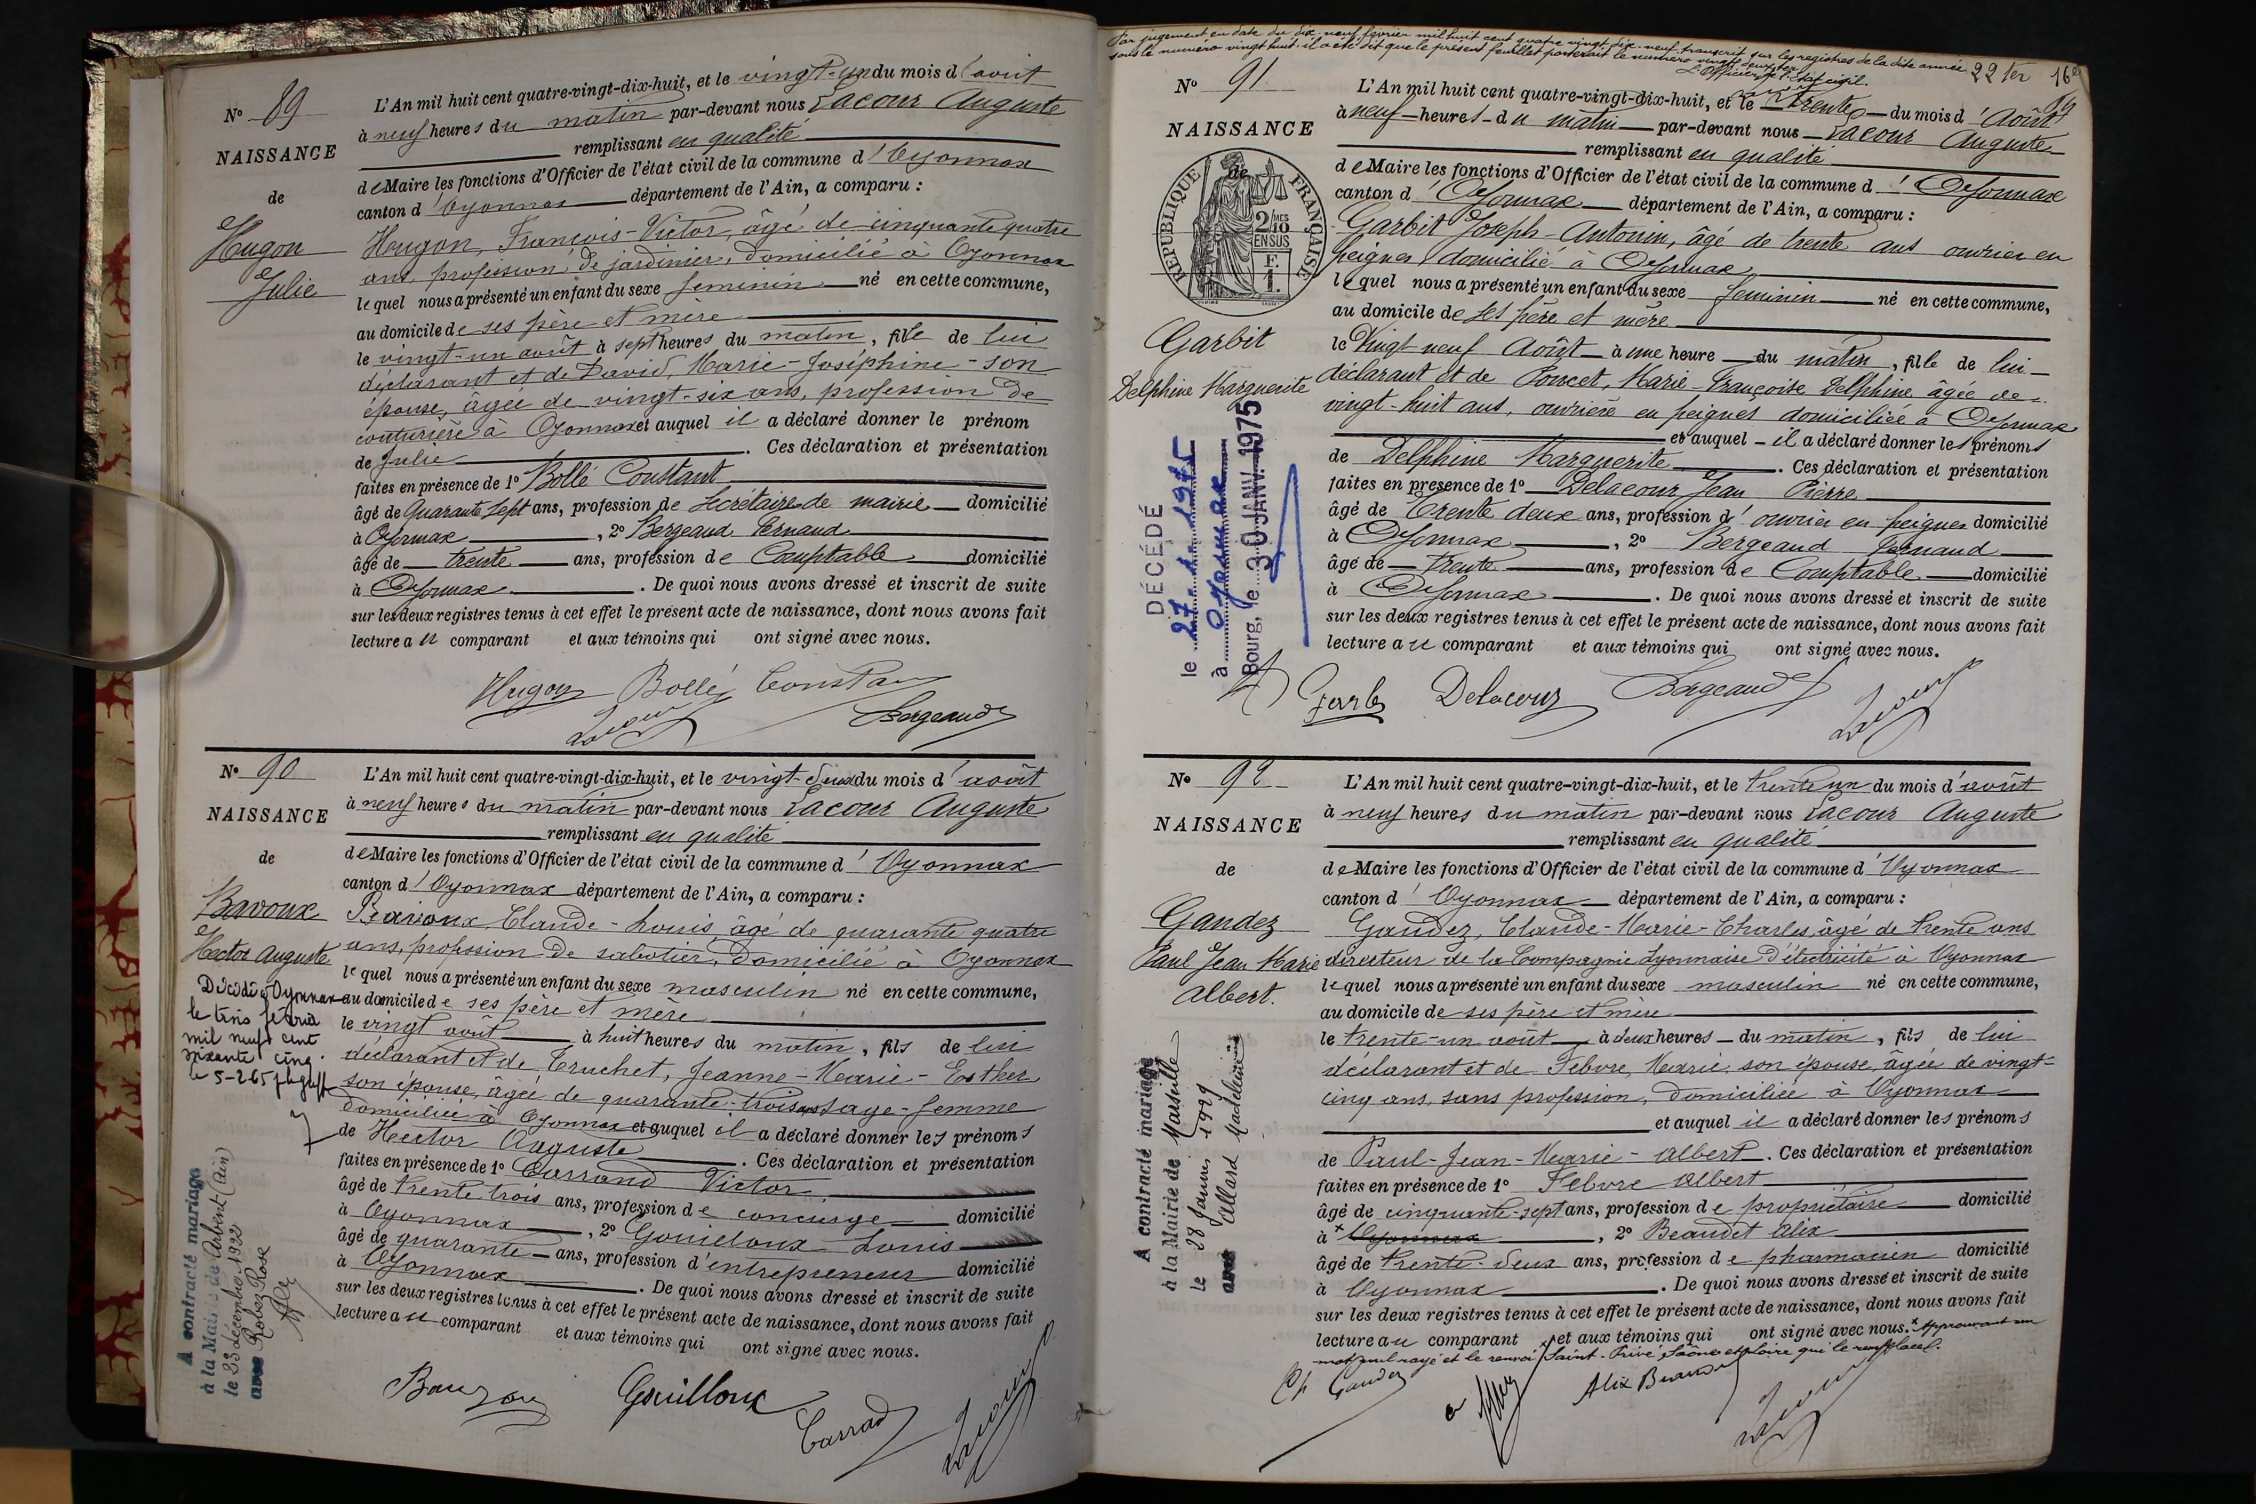 N° 89
NAISSANCE
de
Hugon
Julie
L'An mil huit cent quatre-vingt-dix-huit, et le vingt-un du mois d'août
à neuf heures du matin par-devant nous Lacour Auguste
remplissant en qualité
de Maire les fonctions d'Officier de l'état civil de la commune d'Oyonnax
canton d'Oyonnax département de l'Ain, a comparu :
Hugon, François-Victor, âgé de cinquante quatre
ans, profession de jardinier, domicilié à Oyonnax
lequel nous a présenté un enfant du sexe féminin né en cette commune,
au domicile de ses père et mère
le vingt-un août à sept heures du matin, fille de lui
déclarant et de David, Marie-Joséphine-son
épouse, âgée de vingt-six ans, profession de
couturière à Oyonnax et auquel il a déclaré donner le prénom
de Julie. Ces déclaration et présentation
faites en présence de 1° Bollé Constant
âgé de Quarante sept ans, profession de Secrétaire de mairie domicilié
à Oyonnax, 2° Bergeaud Fernand
âgé de trente ans, profession de Comptable domicilié
à Oyonnax. De quoi nous avons dressé et inscrit de suite
sur les deux registres tenus à cet effet le présent acte de naissance, dont nous avons fait
lecture au comparant et aux témoins qui ont signé avec nous.
Hugon Bollé Constant
Lacour Bergeaud
N° 90
NAISSANCE
de
Bavoux
Hector Auguste
Décédé à Oyonnax
le trois février
mil neuf cent
soixante cinq.
le 5-2-65
A contracté mariage
à la Mairie de Arbent (Ain)
le 23 décembre 1922
avec Robez Rose
L'An mil huit cent quatre-vingt-dix-huit, et le vingt-deux du mois d'août
à neuf heures du matin par-devant nous Lacour Auguste
remplissant en qualité
de Maire les fonctions d'Officier de l'état civil de la commune d'Oyonnax
canton d'Oyonnax département de l'Ain, a comparu :
Bavoux, Claude-Louis, âgé de quarante quatre
ans, profession de sabotier, domicilié à Oyonnax
lequel nous a présenté un enfant du sexe masculin né en cette commune,
au domicile de ses père et mère
le vingt août à huit heures du matin, fils de lui
déclarant et de Truchet, Jeanne-Marie-Esther
son épouse, âgée de quarante-trois ans sage-femme
domiciliée à Oyonnax et auquel il a déclaré donner les prénoms
de Hector Auguste. Ces déclaration et présentation
faites en présence de 1° Carrand Victor
âgé de trente trois ans, profession de concierge domicilié
à Oyonnax, 2° Gouilloux Louis
âgé de quarante ans, profession d'entrepreneur domicilié
à Oyonnax. De quoi nous avons dressé et inscrit de suite
sur les deux registres tenus à cet effet le présent acte de naissance, dont nous avons fait
lecture au comparant et aux témoins qui ont signé avec nous.
Bavoux Gouilloux Carrand Lacour
Par jugement en date du dix-neuf février mil huit cent quatre vingt dix-neuf transcrit sur les registres de la dite année
sous le numéro vingt huit il a été dit que le présent feuillet porterait le numéro vingt deux ter
L'Officier de l'État civil.
22 ter 16e
N° 91
NAISSANCE
de
RÉPUBLIQUE FRANÇAISE
2/10 MES
EN SUS
F.
1.
Garbit
Delphine Marguerite
DÉCÉDÉ
le 27.1.1975
à Oyonnax
Bourg, le 30 JANV. 1975
L'An mil huit cent quatre-vingt-dix-huit, et le trente du mois d'Août
à neuf heures du matin par-devant nous Lacour Auguste
remplissant en qualité
de Maire les fonctions d'Officier de l'état civil de la commune d'Oyonnax
canton d'Oyonnax département de l'Ain, a comparu :
Garbit Joseph-Antonin, âgé de trente ans ouvrier en
peignes, domicilié à Oyonnax
lequel nous a présenté un enfant du sexe féminin né en cette commune,
au domicile de ses père et mère
le Vingt neuf Août à une heure du matin, fille de lui
déclarant et de Poncet, Marie-Françoise Delphine âgée de
vingt-huit ans, ouvrière en peignes domiciliée à Oyonnax
et auquel il a déclaré donner les prénoms
de Delphine Marguerite. Ces déclaration et présentation
faites en présence de 1° Delacour Jean Pierre
âgé de Trente deux ans, profession d'ouvrier en peignes domicilié
à Oyonnax, 2° Bergeaud Fernand
âgé de trente ans, profession de Comptable domicilié
à Oyonnax. De quoi nous avons dressé et inscrit de suite
sur les deux registres tenus à cet effet le présent acte de naissance, dont nous avons fait
lecture au comparant et aux témoins qui ont signé avec nous.
Garb Delacour Bergeaud Lacour
N° 92
NAISSANCE
de
Gandez
Paul Jean Marie
Albert.
A contracté mariage
à la Mairie de Marseille
le 28 Janvier 1929
avec Allard Madeleine
L'An mil huit cent quatre-vingt-dix-huit, et le trente un du mois d'août
à neuf heures du matin par-devant nous Lacour Auguste
remplissant en qualité
de Maire les fonctions d'Officier de l'état civil de la commune d'Oyonnax
canton d'Oyonnax département de l'Ain, a comparu :
Gandez, Claude-Marie-Charles, âgé de trente ans
directeur de la Compagnie Lyonnaise d'électricité à Oyonnax
lequel nous a présenté un enfant du sexe masculin né en cette commune,
au domicile de ses père et mère
le trente-un août à deux heures du matin, fils de lui
déclarant et de Febvre, Marie, son épouse, âgée de vingt-
cinq ans, sans profession, domiciliée à Oyonnax
et auquel il a déclaré donner les prénoms
de Paul-Jean-Marie-Albert. Ces déclaration et présentation
faites en présence de 1° Febvre Albert
âgé de cinquante-sept ans, profession de propriétaire domicilié
à × Oyonnax, 2° Beaudet Alix
âgé de trente-deux ans, profession de pharmacien domicilié
à Oyonnax. De quoi nous avons dressé et inscrit de suite
sur les deux registres tenus à cet effet le présent acte de naissance, dont nous avons fait
lecture au comparant et aux témoins qui ont signé avec nous. × Approuvant un
mot nul rayé et le renvoi × Saint-Privé, Saône et Loire qui le remplace.
Ch Gandez Alix Beaudet Lacour